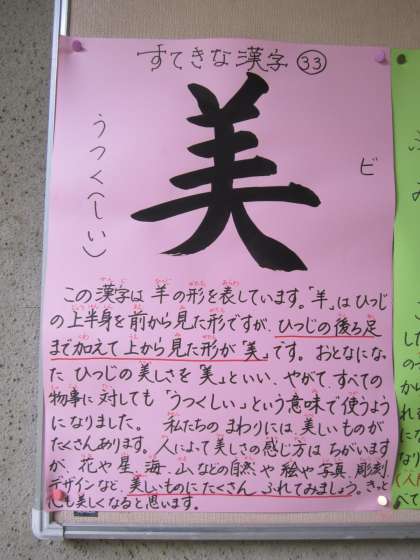 すてきな漢字 33
美
うつく(しい)
ビ
この漢字は羊の形を表しています。「羊」はひつじ
の上半身を前から見た形ですが、ひつじの後ろ足
まで加えて上から見た形が「美」です。おとなになっ
た ひつじの美しさを「美」といい、やがて、すべての
物事に対しても「うつくしい」という意味で使うよう
になりました。 私たちのまわりには、美しいものが
たくさんあります。人によって美しさの感じ方は ちがいます
が、花や星、海、山などの自然や 絵や写真、彫刻
デザインなど、美しいものにたくさん ふれてみましょう。きっと
心も美しくなると思います。